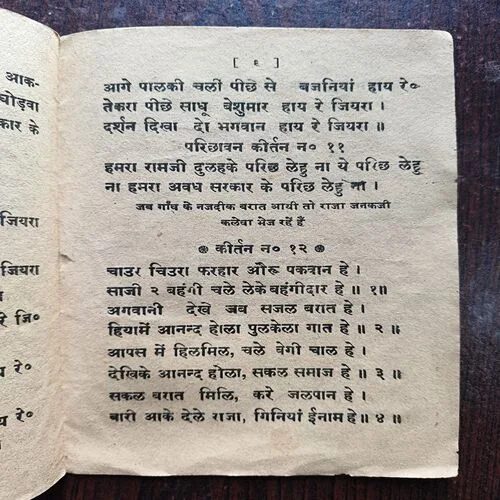 आक-
घोड़वा
कार के
जियरा
जियरा
रे जि०
रे०
रे०
[ ६ ]
आगे पालकी चलीं पीछे से बजनियां हाय रे०
तेकरा पीछे साधू बेशुमार हाय रे जियरा ।
दर्शन दिखा दो भगवान हाय रे जियरा ॥
परिछावन कीर्तन न० ११
हमरा रामजी दुलहके परिछ लेहु ना ये परिछ लेहु
ना हमरा अवध सरकार के परिछ लेहु ना ।
जब गाँव के नजदीक बरात आयी तो राजा जनकजी
कलेवा भेज रहें हैं
❀ कीर्तन न० १२ ❀
चाउर चिउरा फरहार औरू पकवान हे ।
साजी २ बहंगी चले लेके बहंगीदार हे ॥ १॥
अगवानी देखे जब सजल बरात हे ।
हियामें आनन्द होला पुलकेला गात हे ॥ २ ॥
आपस में हिलमिल, चले वेगी चाल हे ।
देखिके आनन्द होला, सकल समाज हे ॥ ३ ॥
सकल बरात मिलि, करे जलपान हे ।
बारी आके देले राजा, गिनियां ईनाम हे ॥ ४ ॥